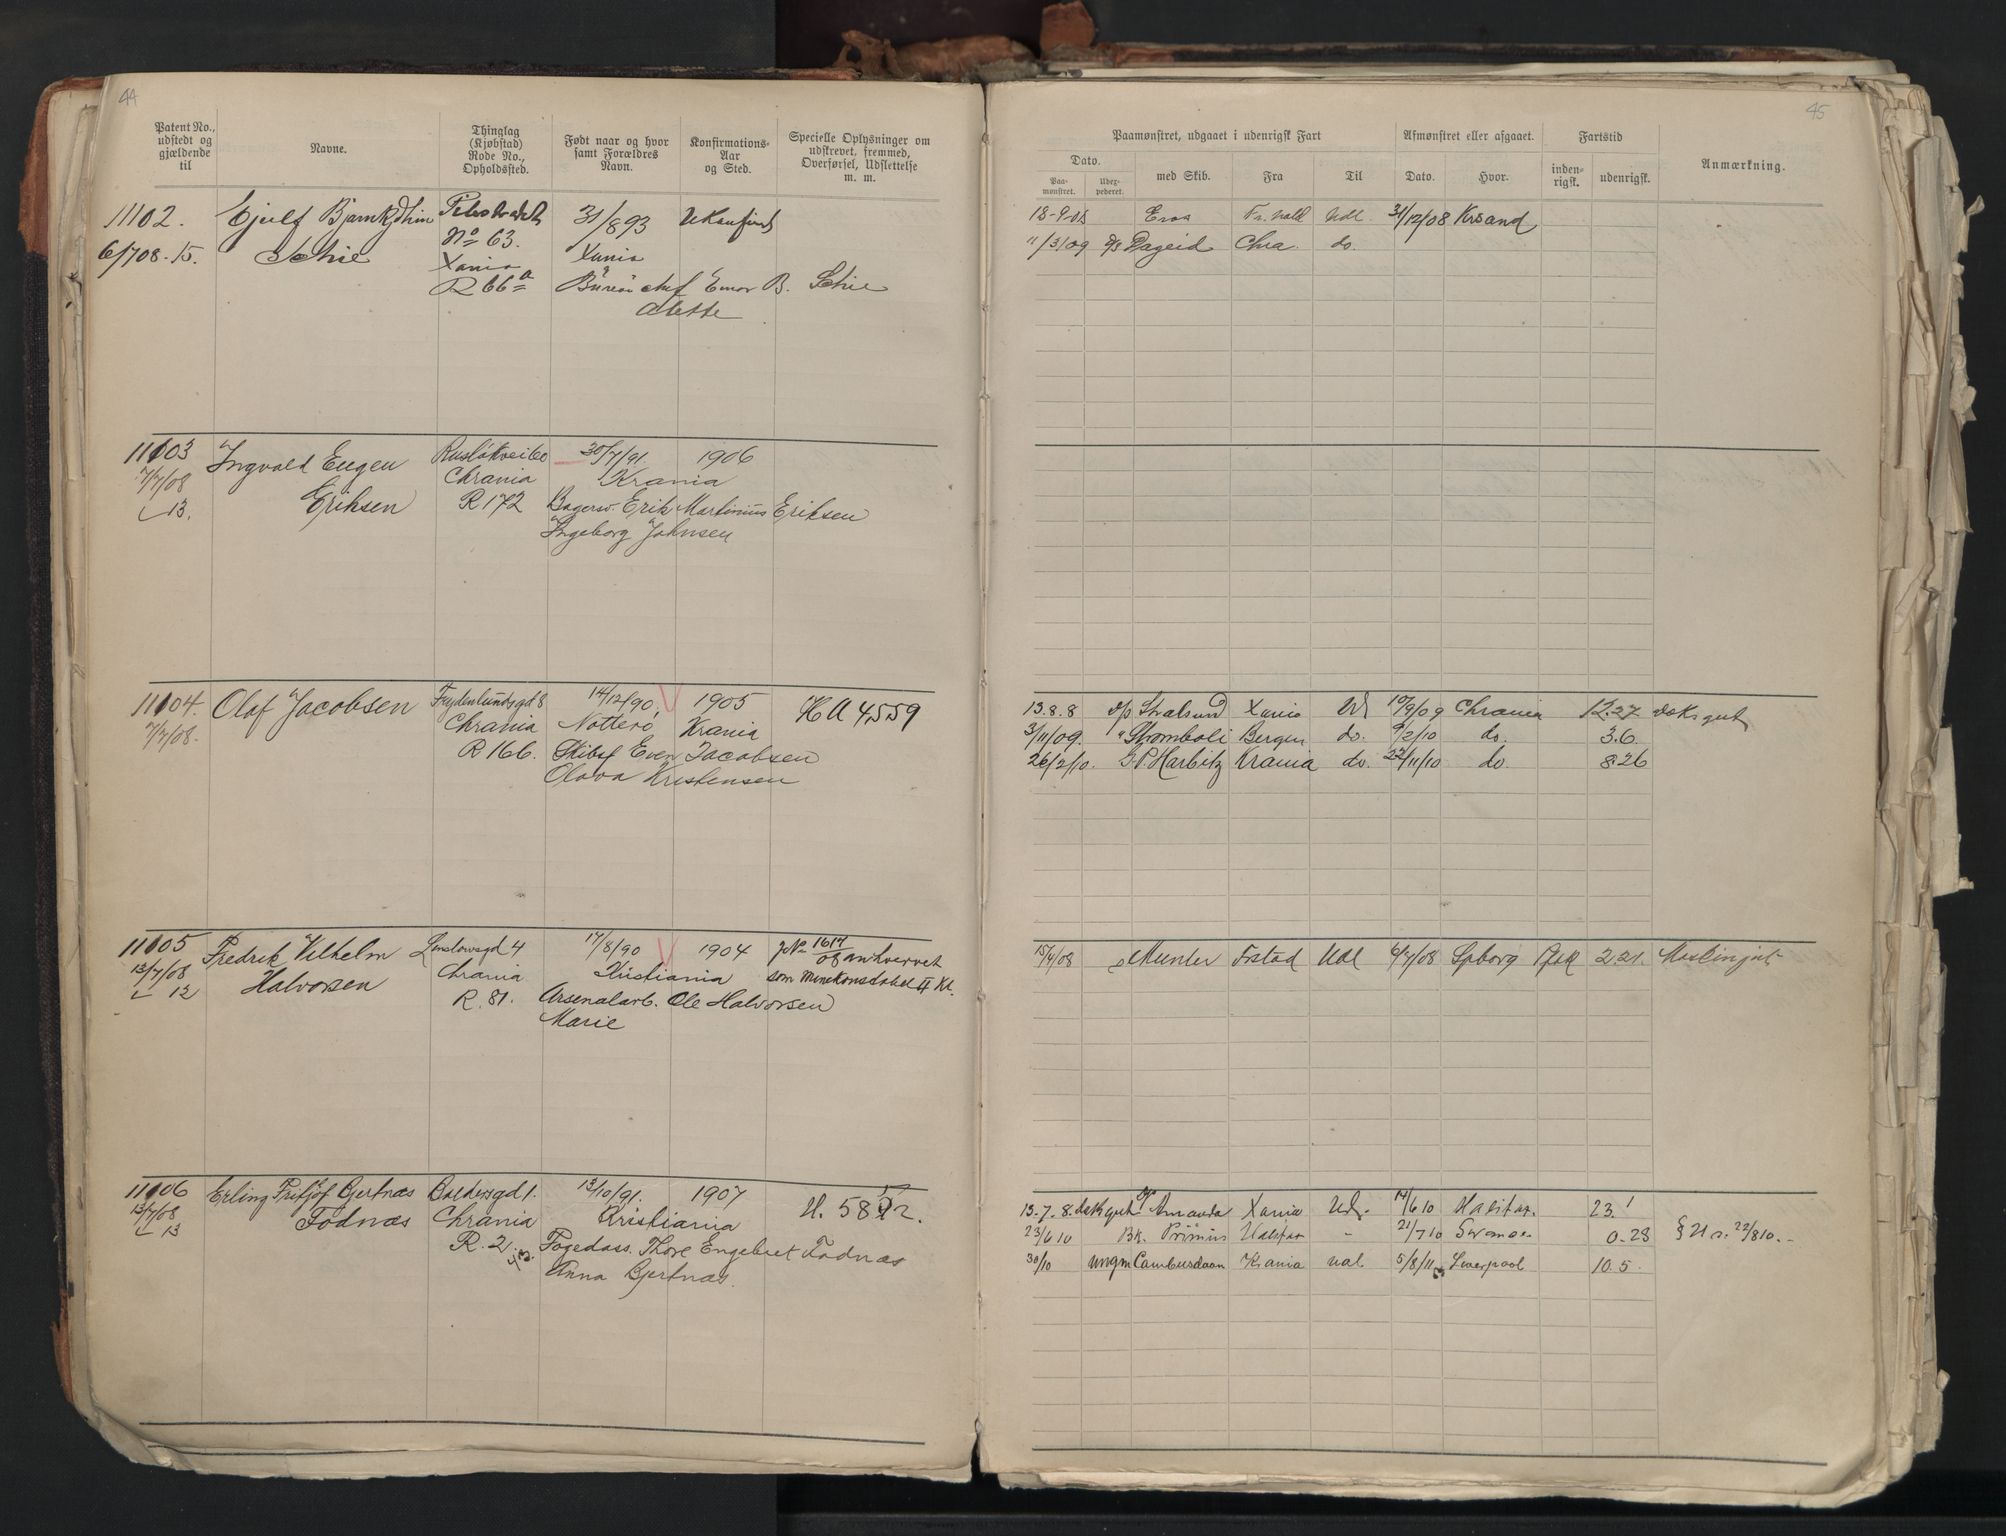 44
Patent No., udstedt og gjældende til
Navne.
Thinglag (Kjøbstad) Rode No., Opholdssted.
Født naar og hvor samt Forældres Navn.
Konfirmations-Aar og Sted.
Specielle Oplysninger om udskrevet, fremmed, Overførsel, Udslettelse m. m.
11102.
6/7 08 - 15.
Ejulf
Schie
No 63.
Xania
R 66 a
31/8 93
Xania
B. Schie
Alette
11103
7/7/08
13.
Ingvald Eugen
Eriksen
Ruslökvei 60
Chrania
R 172
30/7/91.
Krania
1906
Erik Martinius Eriksen
Ingeborg Johnsen
11104.
7/7/08.
Olaf Jacobsen
Frydenlundsgd 8
Chrania
R 166.
14/12/90. V
Notterö
1905
Krania
Skibsf Even Jacobsen
Olava Kristensen
H A 4559
11105
13/7/08
12
Fredrik Vilhelm
Halvorsen
Lenslowsgd 4
Chrania
R. 81.
17/8/90 V
Kristiania
1904
Arsenalarb. Ole Halvorsen
Marie
1617/08 anhvervet
som Minekonstabel II Kl.
11106
13/7/08
13
Erling Fritjof Gjertnæs
Födnæs
Baldersgd 1.
Chrania
R. 2.
13/10/91.
Kristiania
1907
Fogedass. Thore Engebret Födnæs
Anna Gjertnæs.
45
Paamønstret, udgaaet i udenrigsk Fart
Afmønstret eller afgaaet.
Fartstid
Anmærkning.
Dato.
Paa-mønstret.
Udex-pederet.
med Skib.
Fra
Til
Dato.
Hvor.
inden-rigsk.
udenrigsk.
18-9-08 Eros Fr. hald Udl 31/12/08 Krsand
11/3/09 D/S Dageid Chra. do.
13.8.8 Stralsund Xania Ud 10/9/09 Chrania 12.27
3/11/09. " Stromboli Bergen do. 9/2/10 do. 3.6.
26/2/10. Harbitz Krania do. 22/11/10 do 8.26
15/4/08 Munter Udl 6/7/08 2.21.
13.-7.-8. Amanda Xania Udl. 14/6 10 23.1
23/6 10 Bk. Primus - 21/7 10 0.28 22/8 10.-
30/10 Ungm Cambusdoon Krania udl 5/8/11 Liverpool 10.5.